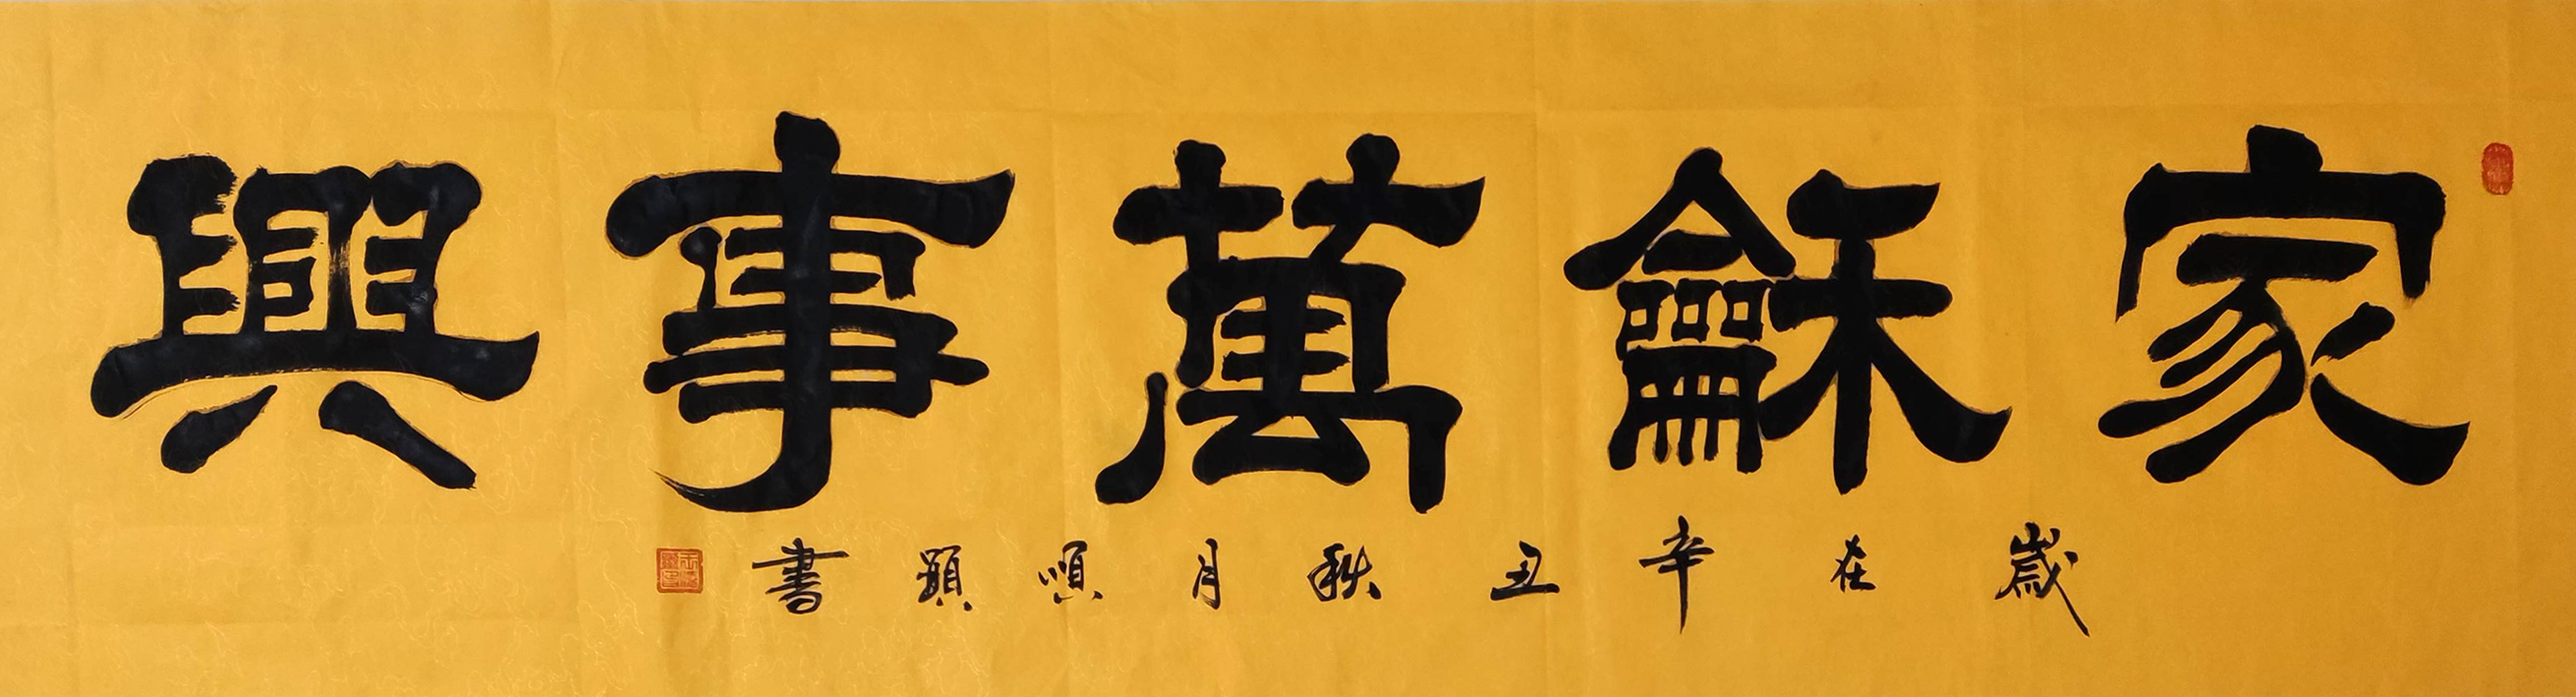 家龢萬事興
歲在辛丑秋月順顯書